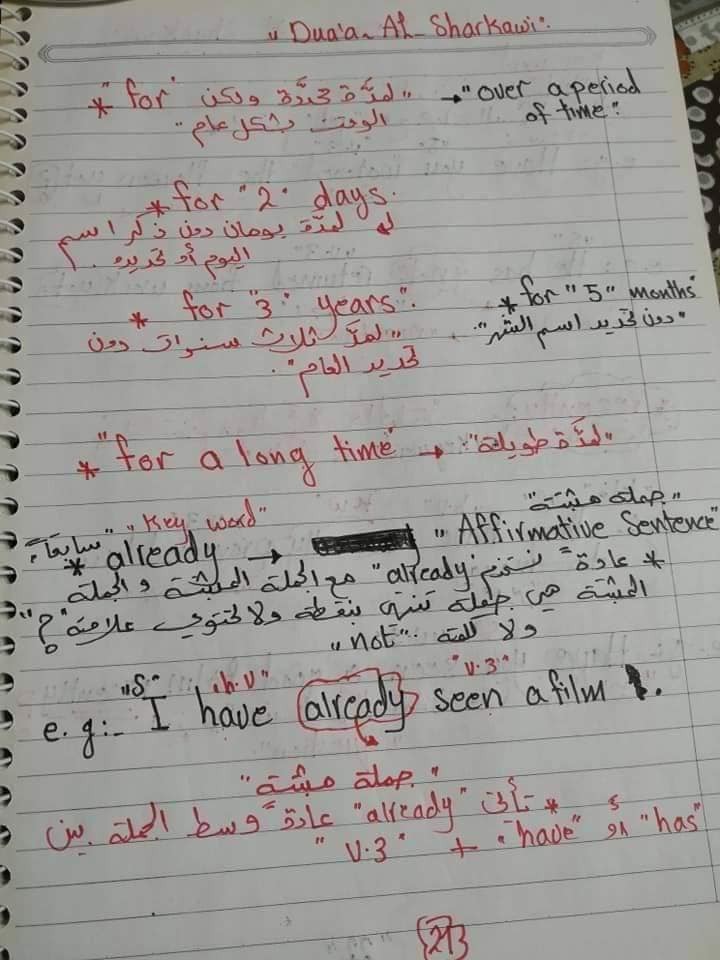 "Dua'a-Al-Sharkawi".
* "for" "لمدَّة محدَّدة ولكن → "over a period
الوقت بشكل عام" of time".
* for "2" days.
لمدَّة يومان دون ذكر اسم
اليوم أو تحديده.
* for "3" years". * for "5" months"
"لمدَّة ثلاث سنوات دون "دون تحديد اسم الشهر".
تحديد العام".
* "for a long time" → "لمدَّة طويلة"
"جملة مثبتة"
"Key word"
* already "سابقاً" → "Affirmative Sentence"
* عادةً نستخدم "already" مع الجملة المثبتة والجملة
المثبتة هي جملة تنتهي بنقطة ولا تحتوي علامة "؟"
ولا كلمة "not"
"S" "h.v" "v.3"
e.g:- I have already seen a film.
"جملة مثبتة"
* تأتي "already" عادةً وسط الجملة بين
"has" أو "have" + "v.3"
27